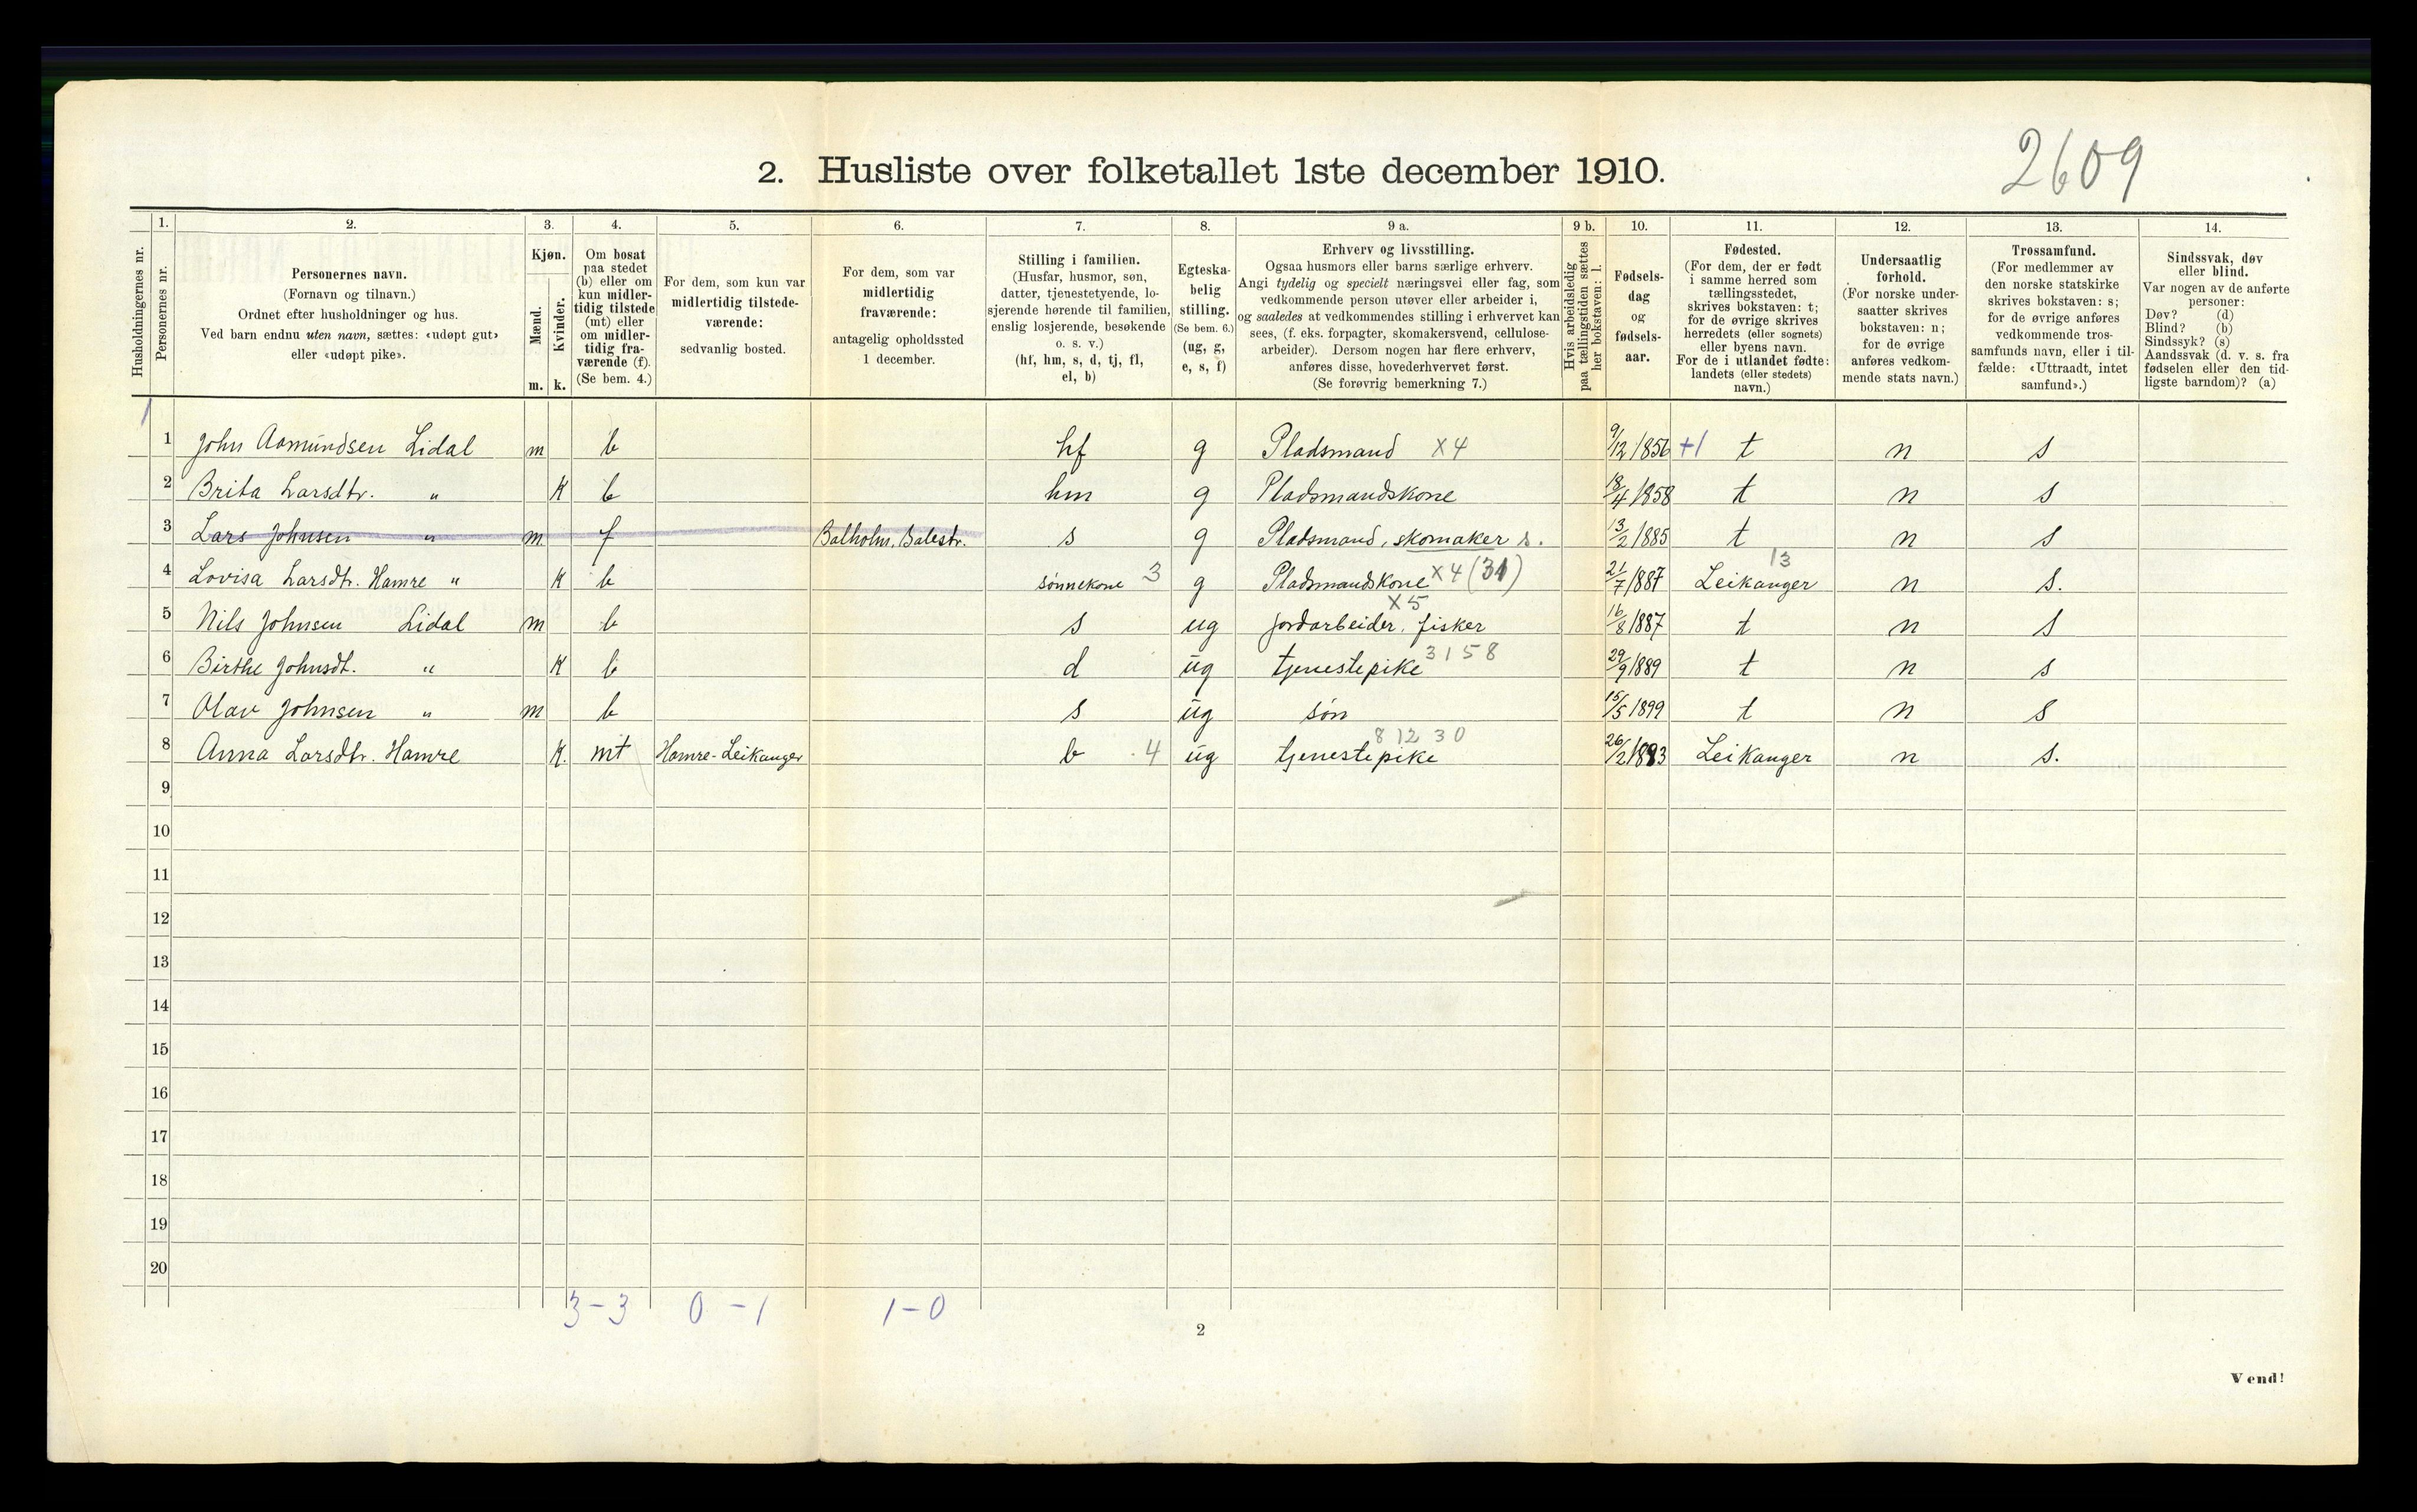 2. Husliste over folketallet 1ste december 1910.
2609
Husholdningernes nr.
1.
Personernes nr.
2.
Personernes navn.
(Fornavn og tilnavn.)
Ordnet efter husholdninger og hus.
Ved barn endnu uten navn, sættes: «udøpt gut»
eller «udøpt pike».
3.
Kjøn.
Mænd.
Kvinder.
m. k.
4.
Om bosat
paa stedet
(b) eller om
kun midler-
tidig tilstede
(mt) eller
om midler-
tidig fra-
værende (f).
(Se bem. 4.)
5.
For dem, som kun var
midlertidig tilstede-
værende:
sedvanlig bosted.
6.
For dem, som var
midlertidig
fraværende:
antagelig opholdssted
1 december.
7.
Stilling i familien.
(Husfar, husmor, søn,
datter, tjenestetyende, lo-
sjerende hørende til familien,
enslig losjerende, besøkende
o. s. v.)
(hf, hm, s, d, tj, fl,
el, b)
8.
Egteska-
belig
stilling.
(Se bem. 6.)
(ug, g,
e, s, f)
9 a.
Erhverv og livsstilling.
Ogsaa husmors eller barns særlige erhverv.
Angi tydelig og specielt næringsvei eller fag, som
vedkommende person utøver eller arbeider i,
og saaledes at vedkommendes stilling i erhvervet kan
sees, (f. eks. forpagter, skomakersvend, cellulose-
arbeider). Dersom nogen har flere erhverv,
anføres disse, hovederhvervet først.
(Se forøvrig bemerkning 7.)
9 b.
Hvis arbeidsledig
paa tællingstiden sættes
her bokstaven: l.
10.
Fødsels-
dag
og
fødsels-
aar.
11.
Fødested.
(For dem, der er født
i samme herred som
tællingsstedet,
skrives bokstaven: t;
for de øvrige skrives
herredets (eller sognets)
eller byens navn.
For de i utlandet fødte:
landets (eller stedets)
navn.)
12.
Undersaatlig
forhold.
(For norske under-
saatter skrives
bokstaven: n;
for de øvrige
anføres vedkom-
mende stats navn.)
13.
Trossamfund.
(For medlemmer av
den norske statskirke
skrives bokstaven: s;
for de øvrige anføres
vedkommende tros-
samfunds navn, eller i til-
fælde: «Uttraadt, intet
samfund».)
14.
Sindssvak, døv
eller blind.
Var nogen av de anførte
personer:
Døv? (d)
Blind? (b)
Sindssyk? (s)
Aandssvak (d. v. s. fra
fødselen eller den tid-
ligste barndom)? (a)
1
1 John Aamundsen Lidal m b hf g Pladsmand x4 9/12 1856 +1 t n s
2 Brita Larsdtr. " k b hm g Pladsmandskone 18/4 1858 t n s
3 Lars Johnsen " m f Balholm, Balestr. s g Pladsmand, skomaker s. 13/2 1885 t n s
4 Lovisa Larsdtr. Hamre " k b sønnekone 3 g Pladsmandskone x4 (31) 21/7 1887 Leikanger 13 n s.
5 Nils Johnsen Lidal m b s ug jordarbeider, fisker x5 16/8 1887 t n s
6 Birthe Johnsdt. " k b d ug tjenestepike 3158 29/9 1889 t n s
7 Olav Johnsen " m b s ug søn 15/5 1899 t n s
8 Anna Larsdtr. Hamre k. mt Hamre-Leikanger b 4 ug tjenestepike 8 12 30 26/2 1893 Leikanger n s.
9
10
11
12
13
14
15
16
17
18
19
20
3-3 0-1 1-0
2
Vend!